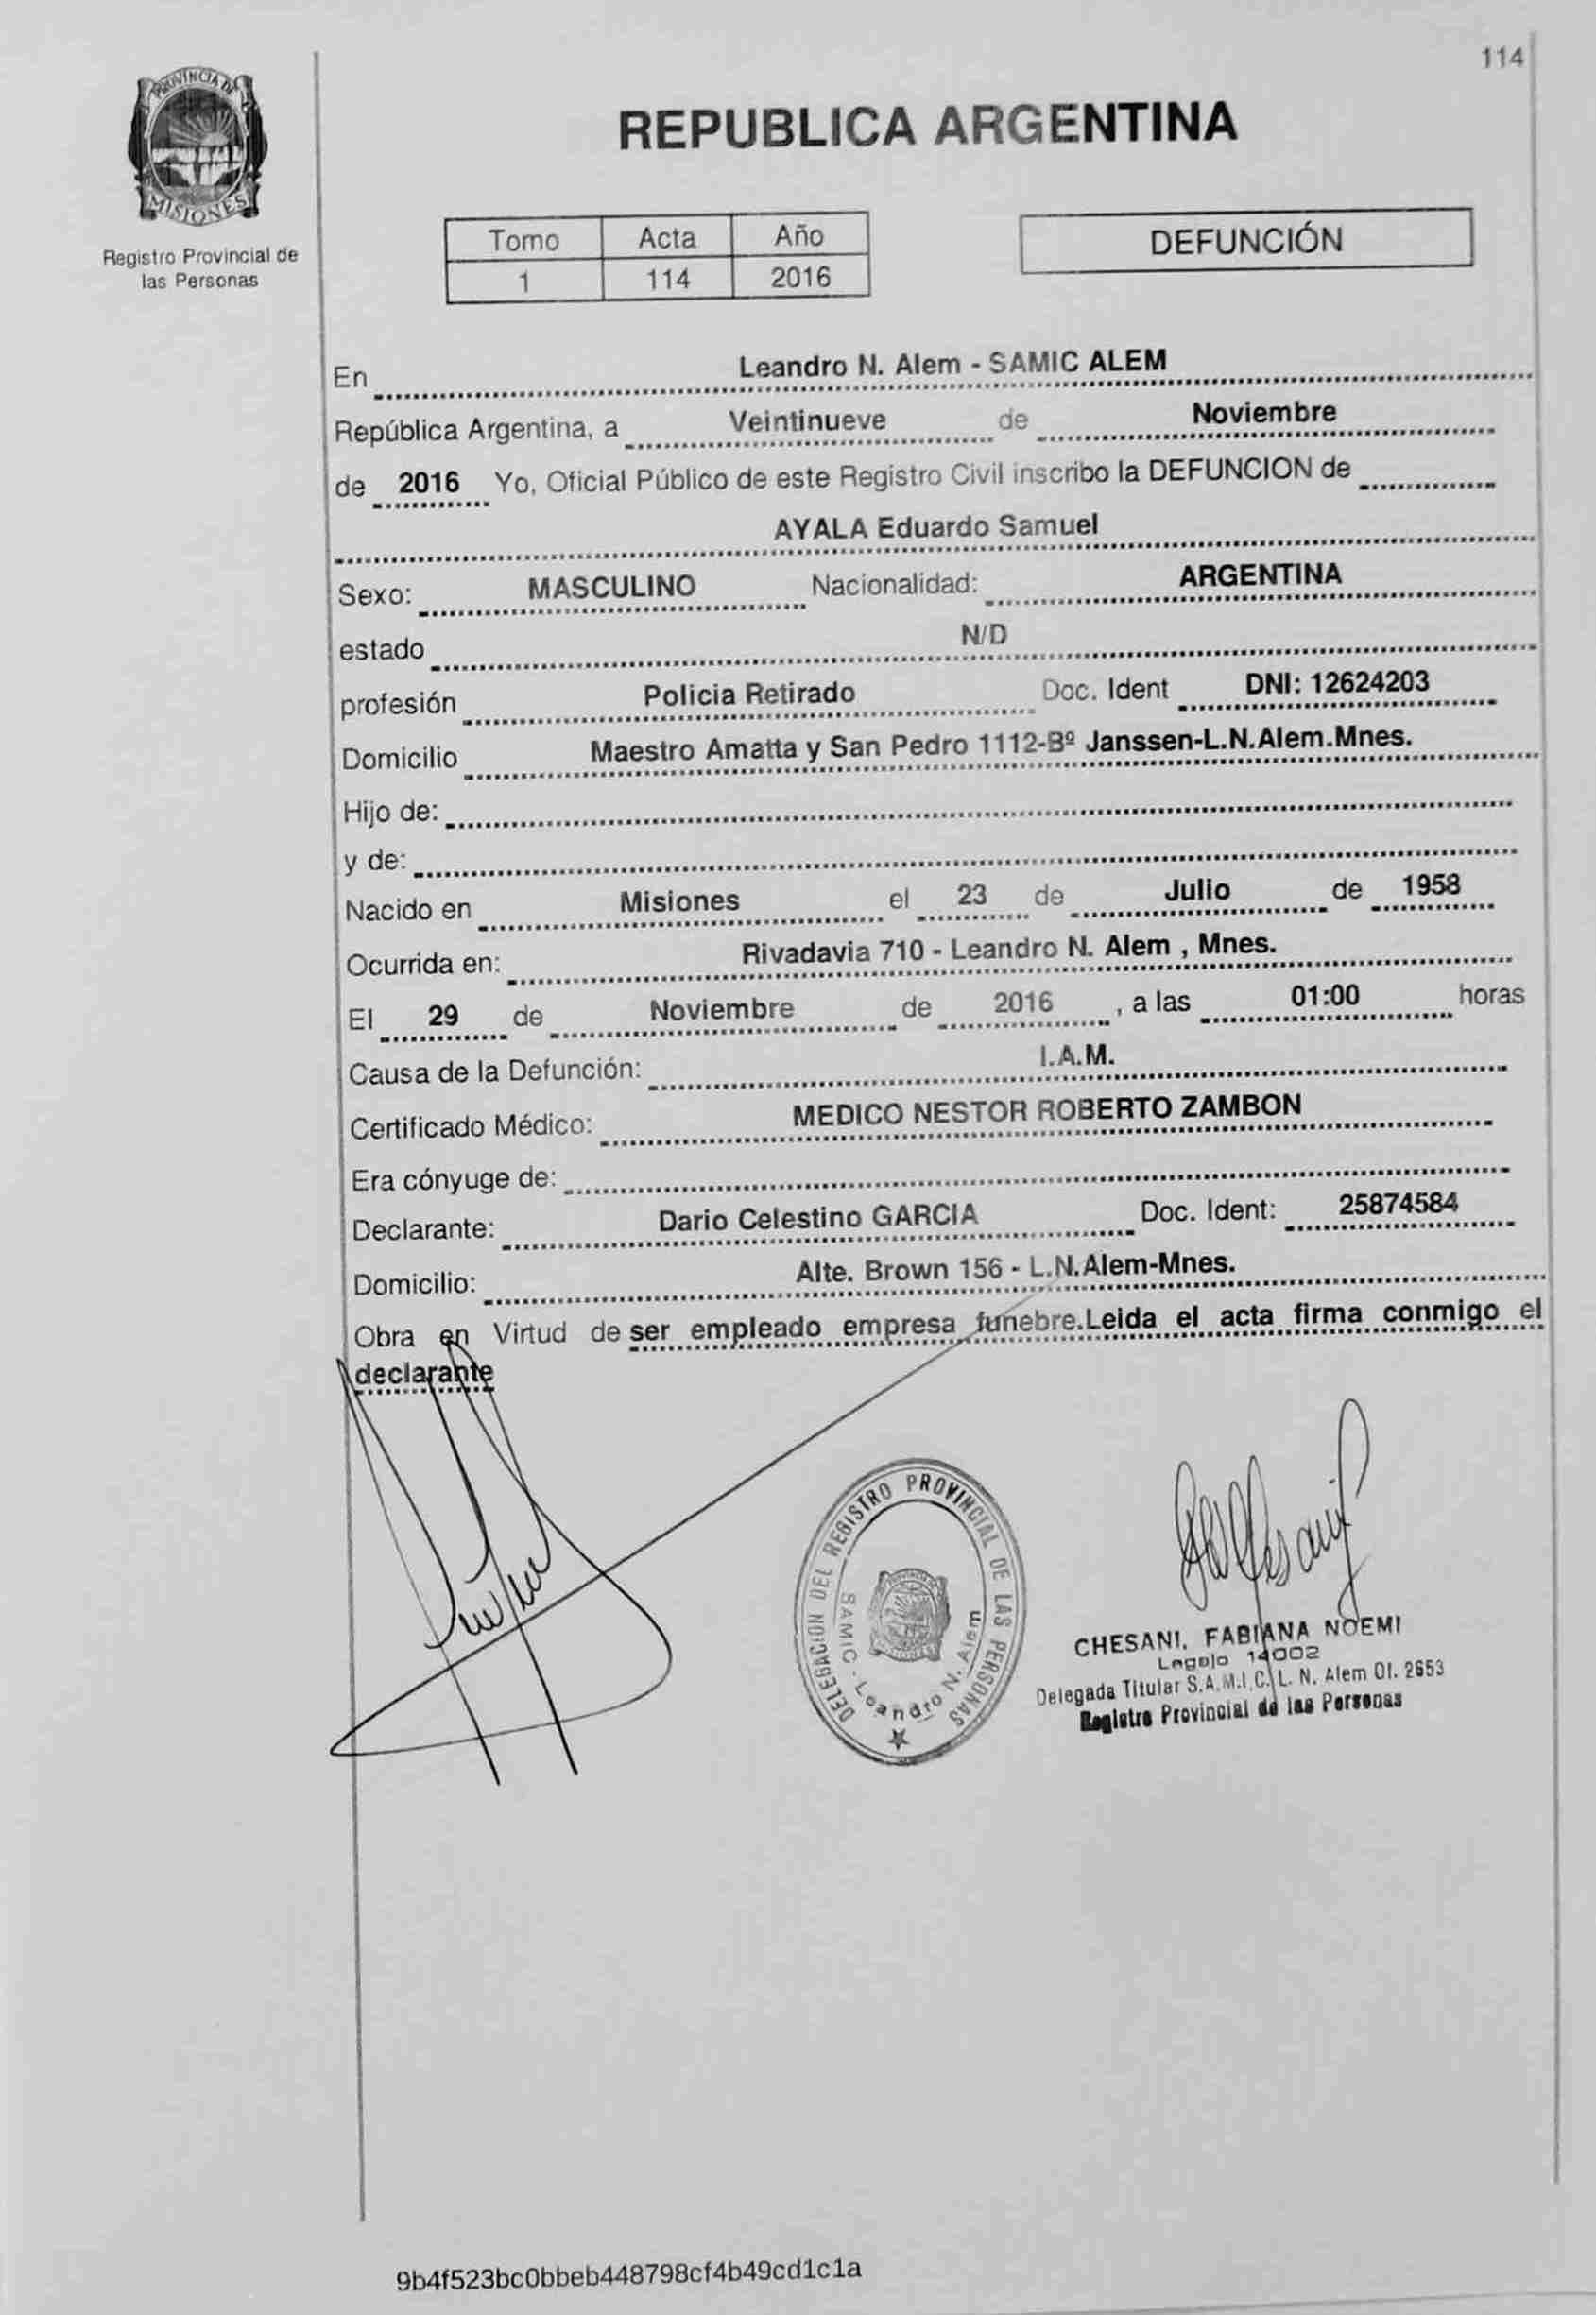 114
PROVINCIA DE
MISIONES
Registro Provincial de
las Personas
REPUBLICA ARGENTINA
Tomo Acta Año
1 114 2016
DEFUNCIÓN
En Leandro N. Alem - SAMIC ALEM
República Argentina, a Veintinueve de Noviembre
de 2016 Yo, Oficial Público de este Registro Civil inscribo la DEFUNCION de
AYALA Eduardo Samuel
Sexo: MASCULINO Nacionalidad: ARGENTINA
estado N/D
profesión Policia Retirado Doc. Ident DNI: 12624203
Domicilio Maestro Amatta y San Pedro 1112-Bº Janssen-L.N.Alem.Mnes.
Hijo de:
y de:
Nacido en Misiones el 23 de Julio de 1958
Ocurrida en: Rivadavia 710 - Leandro N. Alem , Mnes.
El 29 de Noviembre de 2016 , a las 01:00 horas
Causa de la Defunción: I.A.M.
Certificado Médico: MEDICO NESTOR ROBERTO ZAMBON
Era cónyuge de:
Declarante: Dario Celestino GARCIA Doc. Ident: 25874584
Domicilio: Alte. Brown 156 - L.N.Alem-Mnes.
Obra en Virtud de ser empleado empresa funebre.Leida el acta firma conmigo el
declarante
DELEGACION DEL REGISTRO PROVINCIAL DE LAS PERSONAS
SAMIC - Leandro N. Alem
CHESANI, FABIANA NOEMI
Legajo 14002
Delegada Titular S.A.M.I.C. L. N. Alem Of. 2653
Registro Provincial de las Personas
9b4f523bc0bbeb448798cf4b49cd1c1a